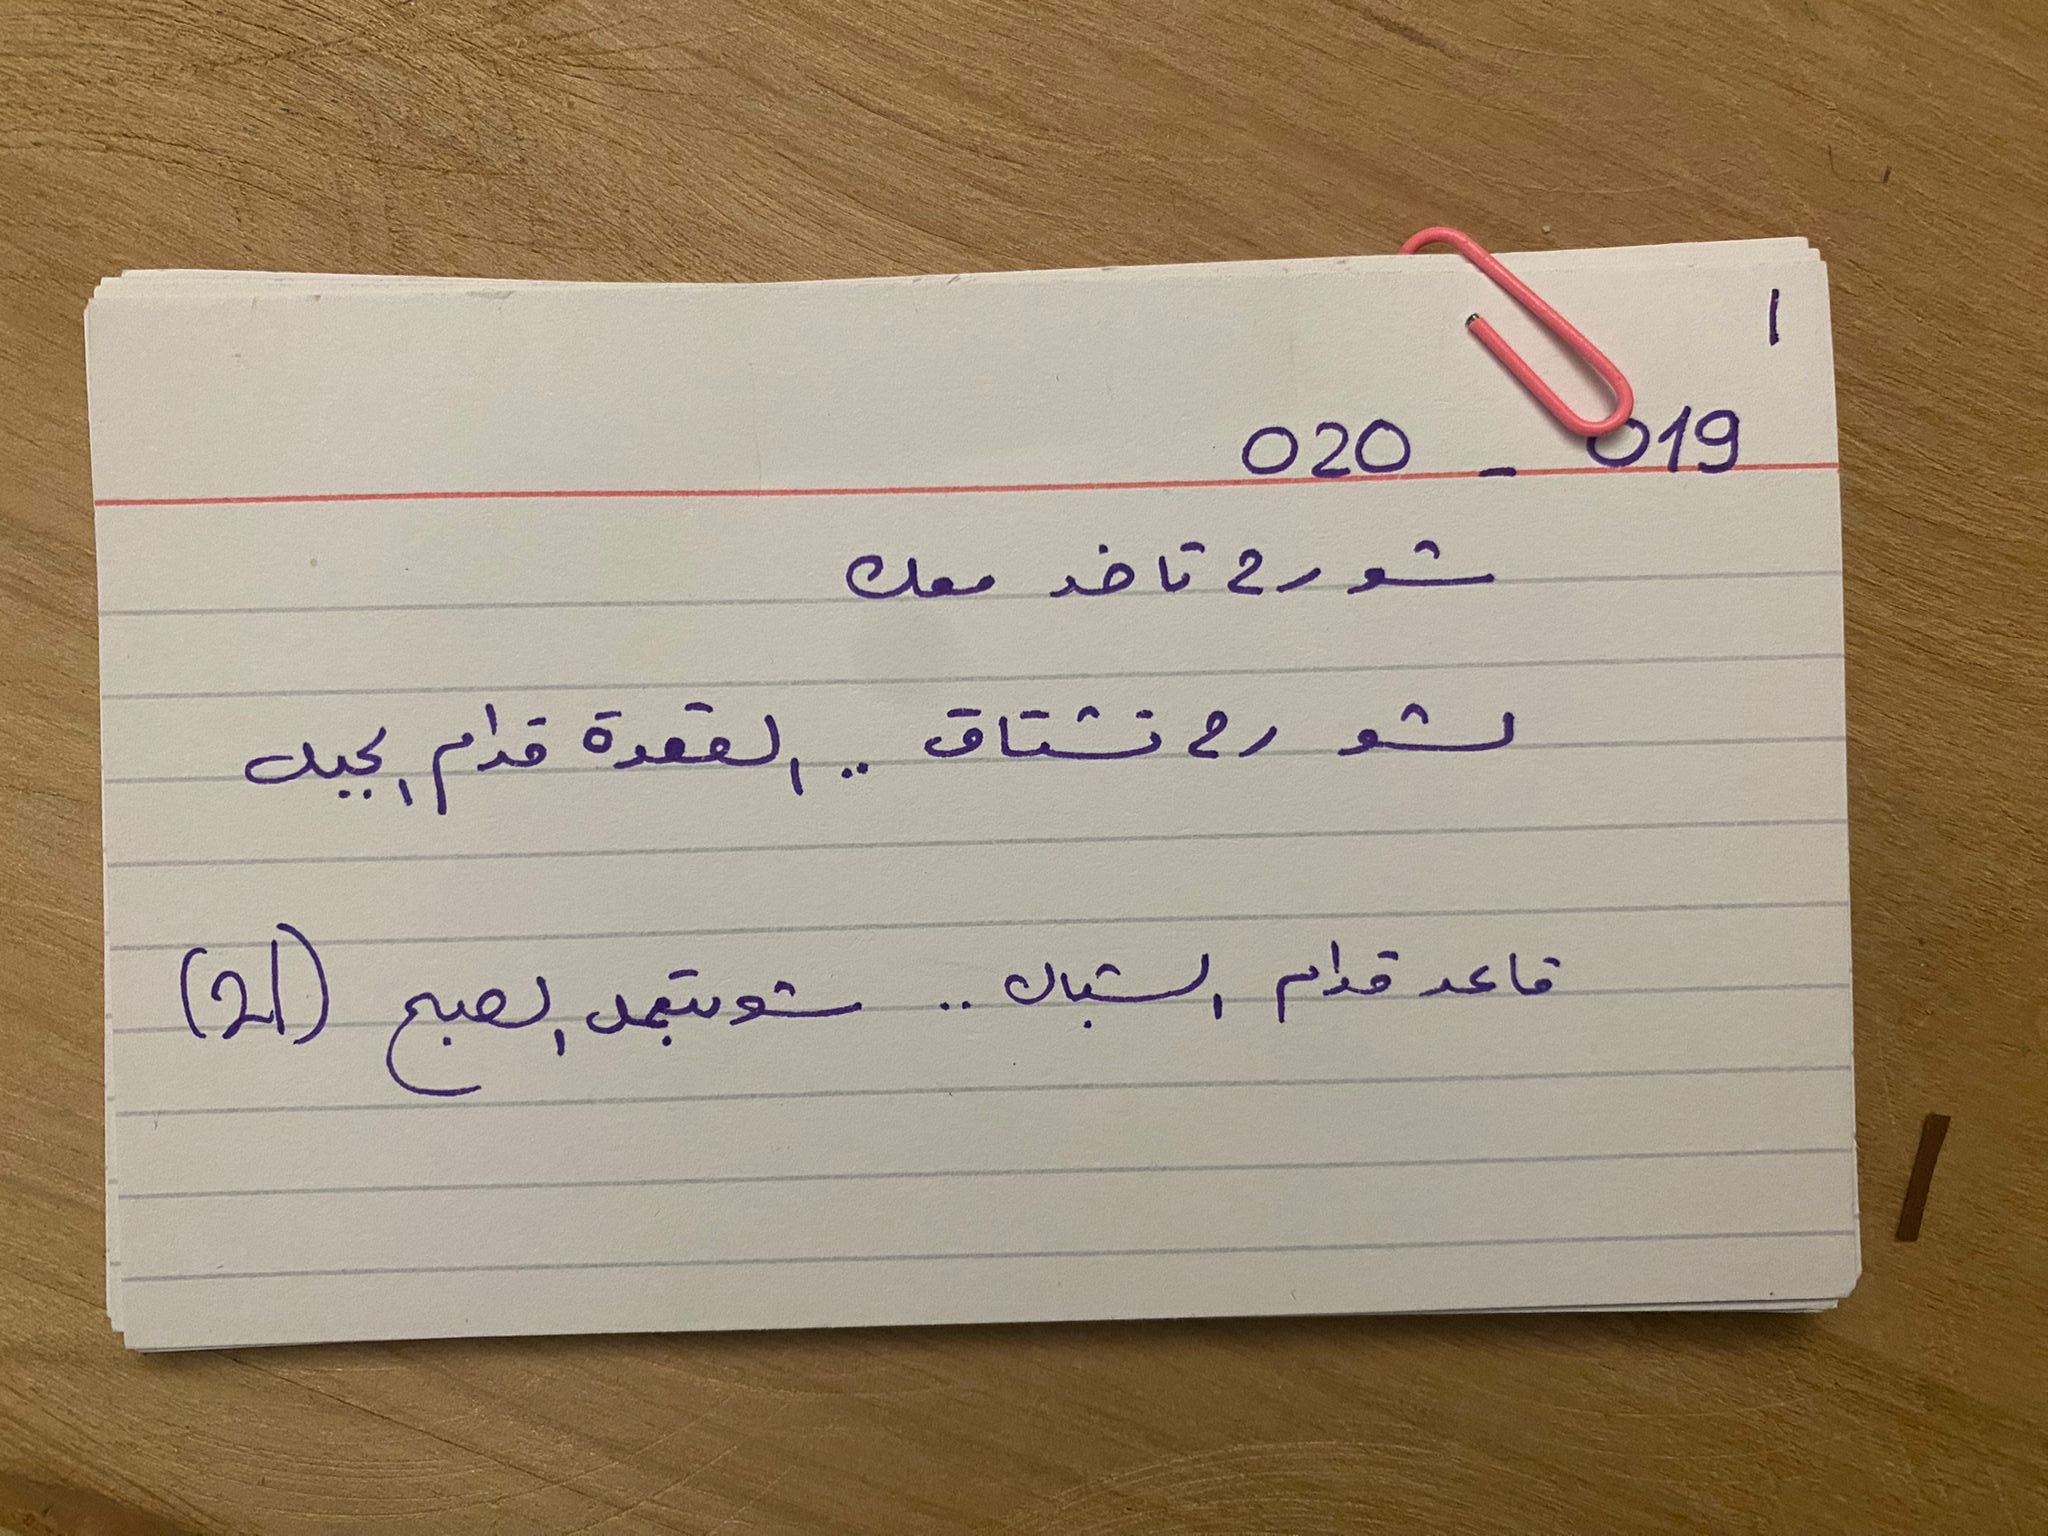 ١
019 - 020
شو رح تاخد معك
لشو رح تشتاق .. القعدة قدام الجبل
قاعد قدام الشباك .. شو بتعمل الصبح (21)